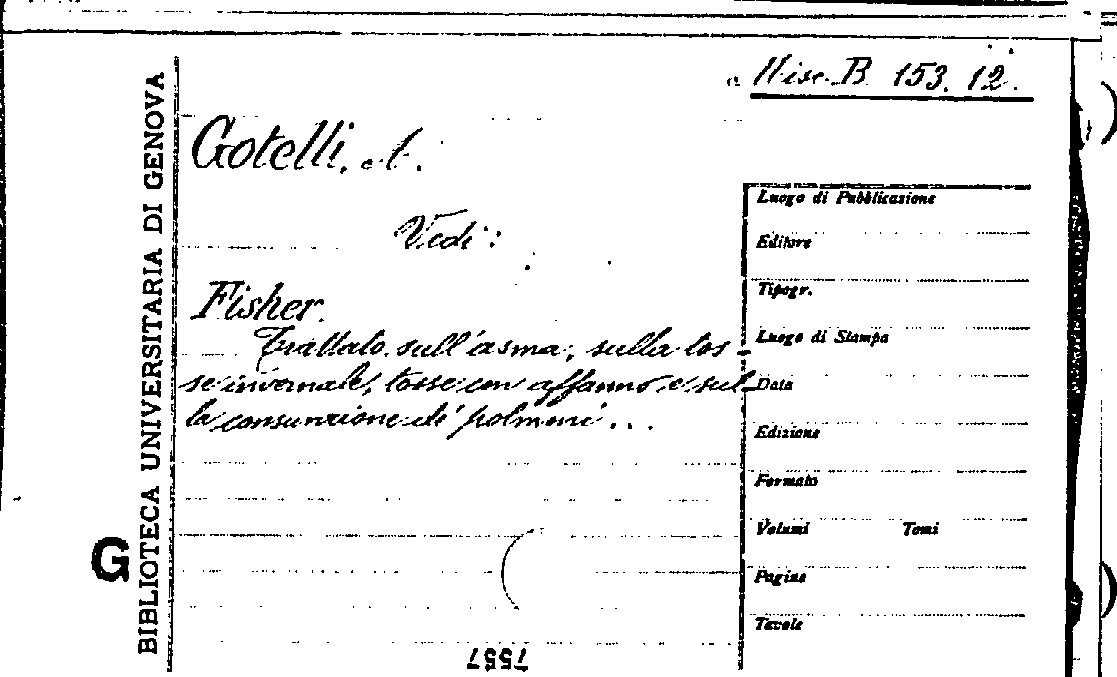 Misc. B 153. 12.
Gotelli, A.
Vedi:
Fisher.
Trattato sull'asma, sulla tos-
se invernale, tosse con affanno e sul-
la consunzione di polmoni ...
Luogo di Pubblicazione
Editore
Tipogr.
Luogo di Stampa
Data
Edizione
Formato
Volumi Tomi
Pagine
Tavole
G
BIBLIOTECA UNIVERSITARIA DI GENOVA
7557